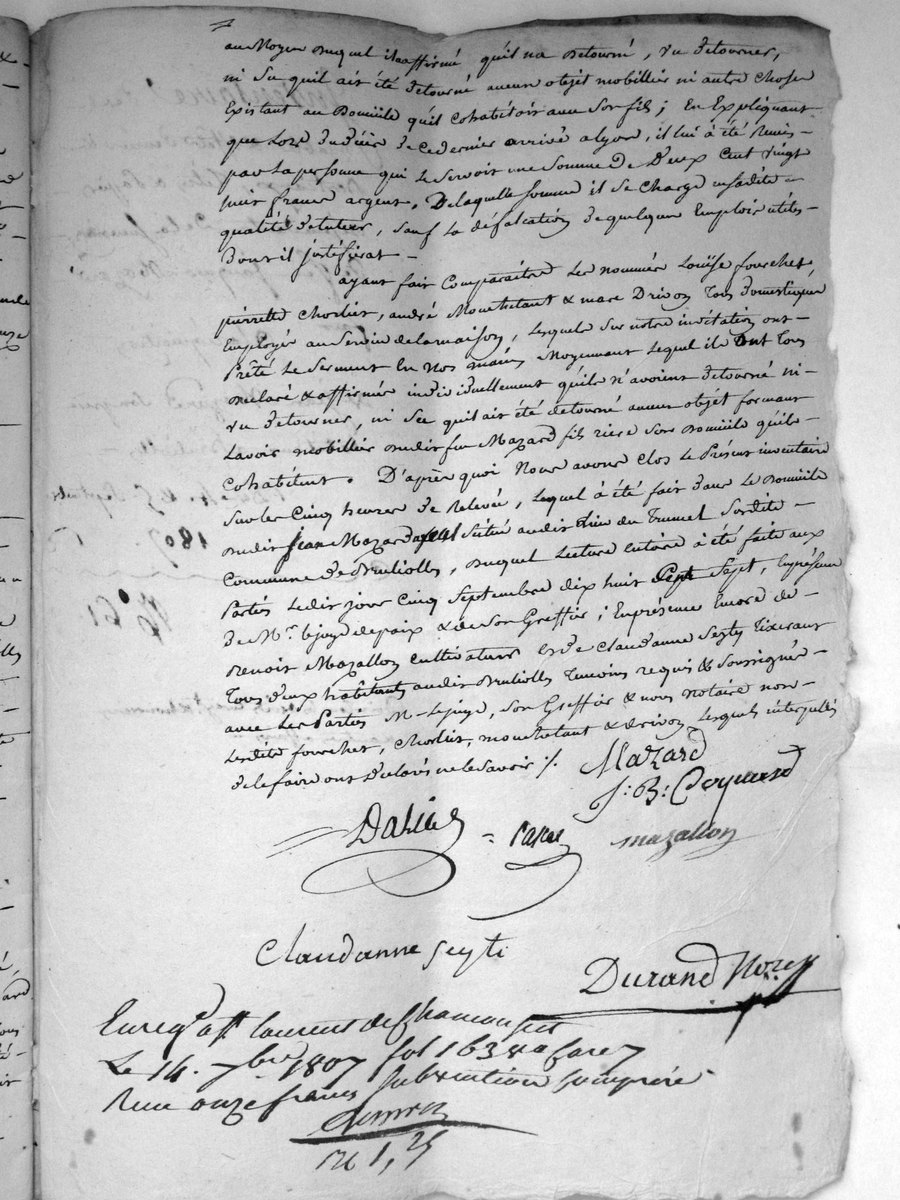 au Moyen Duquel il a affirmé qu'il n'a Detourné, vu Detourner,
ni Su quil ait été Detourné aucun objet mobillier ni autre choses
Existant au Domicile quil cohabitoit avec Son fils ; En Expliquant
que Lors du décès de ce dernier arrivé a lyon, il lui à été Remis
par La personne qui Le Servoit une Somme de Deux Cent Vingt
huit francs argent, De laquelle Somme il Se Charge en sadite
qualité de tuteur, Sauf La défalcation de quelques Emplois utiles
Dont il justifierat —
ayant fait Comparaître Les nommés Louise fourchet,
pierrette Chorlier, andré Mouchetant & marc Drivon Tous Domestiques
Employés au Service de la maison, Lesquels Sur notre invitation ont
Prêté Le Serment En Nos mains Moyennant Lequel ils Ont Tous
Déclaré & affirmé individuellement qu'ils n'avoient Detourné ni
vu Detourner, ni Su quil ait été détourné aucun objet formant
L'avoir mobillier dudit feu Mazard fils riere Son Domicile qu'ils
cohabitent. D'après quoi Nous avons Clos Le Présent inventaire
Sur les Cinq heures de Relevée, Lequel à été fait dans Le Domicile
dudit Jean Mazard Situé audit Lieu du Trunel Susdite
Commune de Brullioles, Duquel Lecture entière à été faite aux
Parties Ledit jour Cinq Septembre dix huit Sept, En présence
de Mr. le juge de paix & de Son Greffier ; En presence Encore de
Benoit Mazallon Cultivateur et de Claudanne Seyty Tixerant
Tous Deux habitants audit Brullioles Temoins requis & Soussignés
avec Les Parties M. Le juge, Son Greffier & nous notaire non
Lesdits fourchet, Chorlier, mouchetant & drivon Lesquels interpellés
de le faire ont Déclarés ne le Savoir ./.
Mazard
J: B: Coquard
mazallon
Claudanne Seyti
Durand Nore
Enregé a St laurent de Chamousset
Le 14. 7bre 1807 fol 163
Reçu onze francs Subvention comprise
1807
No 61